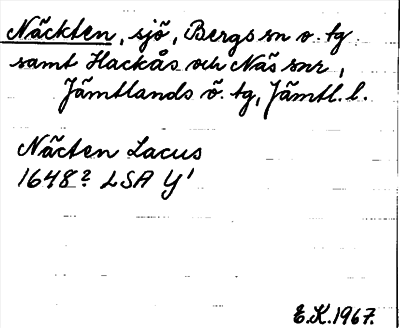 Näckten, sjö, Bergs sn o. tg
samt Hackås och Näs snr,
Jämtlands ö. tg, Jämtl. l.
Näcten Lacus
1648? LSA Y¹
E.K. 1967.